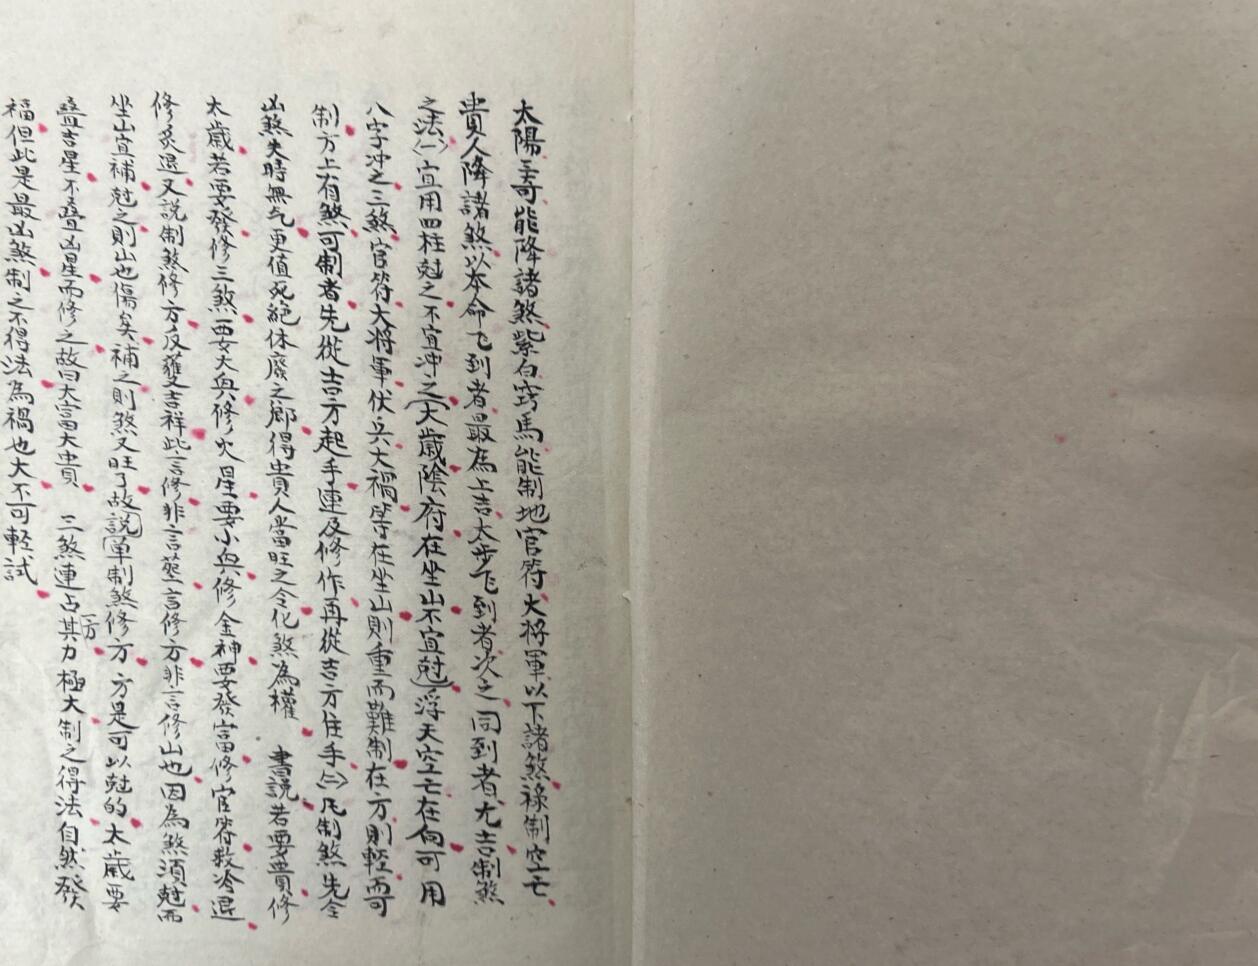 太陽三奇能降諸煞紫白竅馬能制地官符大将軍以下諸煞祿制空亡
貴人降諸煞以本命飞到者最為上吉太歩飞到者次之同到者尤吉制煞
之法㈠宜用四柱尅之不宜冲之(大歲陰府在坐山不宜尅)浮天空亡在向可用
八字冲之三煞官符大將軍伏兵大禍等在坐山則重而難制在方則輕而可
制方上有煞可制者先從吉方起手連及修作再從吉方住手㈡凡制煞先令
凶煞失時無气更值死絕休廢之鄉得貴人當旺之令化煞為權 書説若要貴修
太歲若要發修三煞要大興修火星要小興修金神要發富修官符救冷退
修炙退又説制煞修方反蕴吉祥此言修非言塟言修方非言修山也因為煞須尅而
坐山宜補尅之則山也傷矣補之則煞又旺了故説單制煞修方方是可以尅的太歲要
叠吉星不叠凶星而修之故曰大富大貴 三煞連占一方其力極大制之得法自然發
福但此是最凶煞制之不得法為禍也大不可輕試